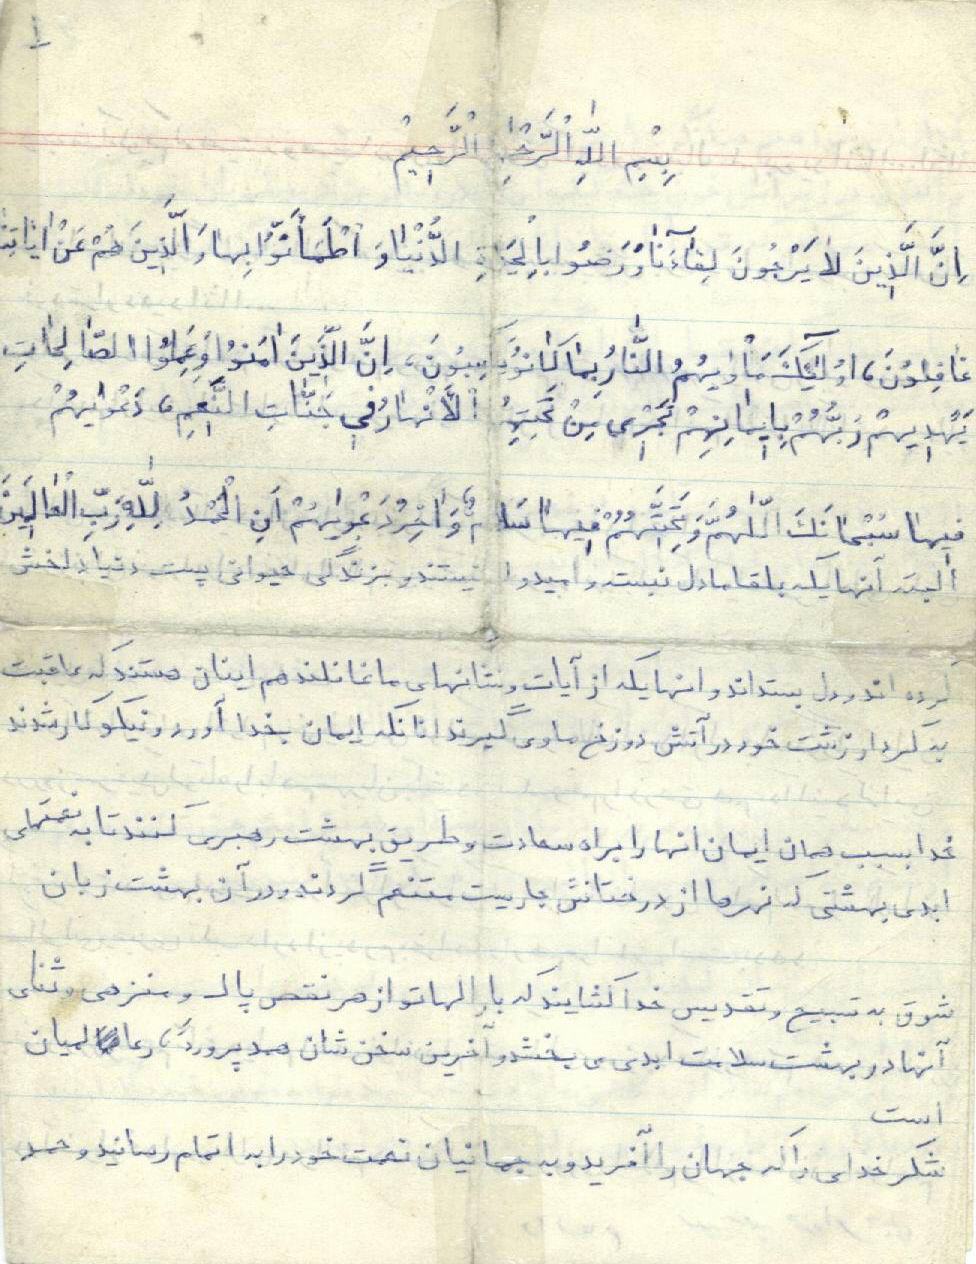 ۱
بِسْمِ اللّٰهِ الْرَّحْمٰنِ الْرَّحِيْمْ
اِنَّ الَّذِينَ لاٰ يَرْجُونَ لِقٰاءَنٰا وَرَضُوا بِالْحَيٰوةِ الدُّنْيٰا وَ اطْمَأَنُّوا بِهٰا وَ الَّذِينَ هُمْ عَنْ اٰيٰاتِنٰا
غٰافِلُونَ، اُولٰئِكَ مَأْوٰيهُمُ النّٰارُ بِمٰا كٰانُوا يَكْسِبُونَ، اِنَّ الَّذِينَ اٰمَنُوا وَعَمِلُوا الصّٰالِحٰاتِ
يَهْدِيهِمْ رَبُّهُمْ بِاِيمٰانِهِمْ تَجْرِي مِنْ تَحْتِهِمُ الْأَنْهٰارُ فِي جَنّٰاتِ النَّعِيمِ، دَعْوٰيهُمْ
فِيهٰا سُبْحٰانَكَ اللّٰهُمَّ وَ تَحِيَّتُهُمْ فِيهٰا سَلاٰمٌ وَ اٰخِرُ دَعْوٰيهُمْ اَنِ الْحَمْدُ لِلّٰهِ رَبِّ الْعٰالَمِينَ
البته آنهایکه بلقا مادل نبسته و امیدوار نیستند و بزندگی حیوانی پست دنیا دلخش
کرده اند و دل بسته‌اند و انهایکه از آیات و نشانهای ما غافلند هم اینان هستند که عاقبت
به کردار زشت خود در آتش دوزخ ماوی گیرند انانکه ایمان بخدا آورد و نیکو کار شدند
خدا بسبب همان ایمان انها را براه سعادت و طریق بهشت رهبری کنند تا به نعمتهای
ابدی بهشتی که نهرها از درختانش جاریست متنعم گردند و در آن بهشت زبان
شوق به تسبیح و تقدیس خدا گشایند که بار الها تو از هر نقص پاک و منزهی و ثنای
آنها در بهشت سلامت ابدی می بخشد و آخرین سخن شان حمد پروردگار عالمیان
است
شکر خدای را که جهان را آفرید و به جهانیان نعمت خود را به اتمام رسانید و حمد